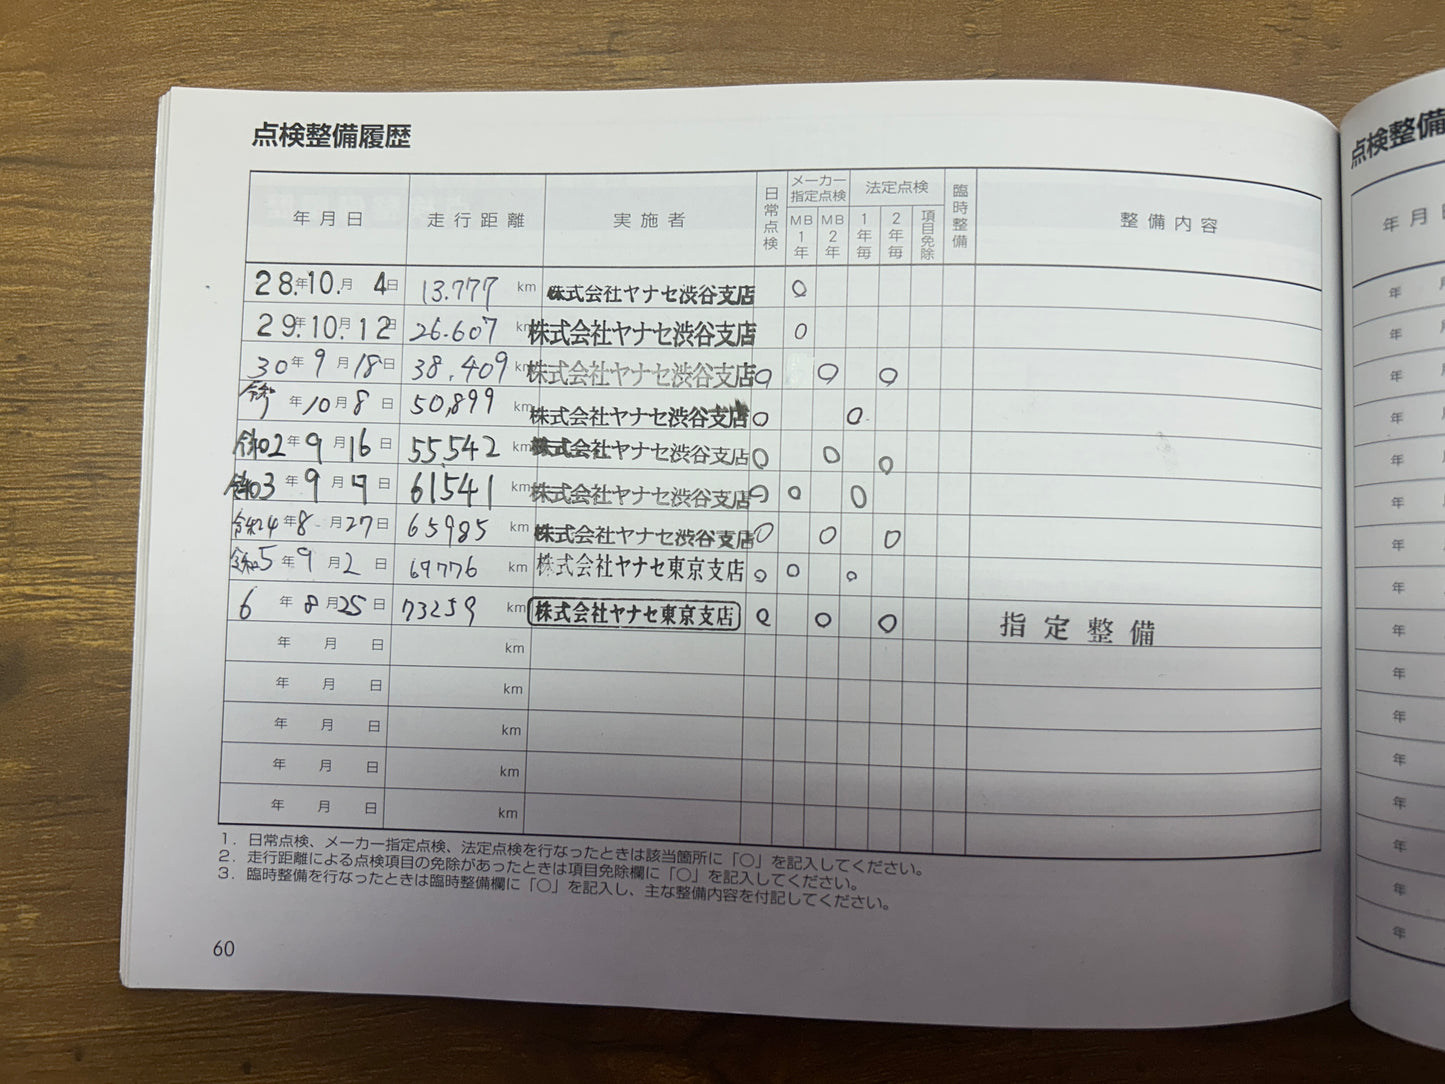 点検整備履歴
年月日 走行距離 実施者 日常点検 メーカー指定点検 MB1年 MB2年 法定点検 1年毎 2年毎 項目免除 臨時整備 整備内容
28年10月4日 13.777km 株式会社ヤナセ渋谷支店 ○
29年10月12日 26.607km 株式会社ヤナセ渋谷支店 ○
30年9月18日 38.409km 株式会社ヤナセ渋谷支店 ○ ○ ○
年10月8日 50,899km 株式会社ヤナセ渋谷支店 ○ ○
令和2年9月16日 55,542km 株式会社ヤナセ渋谷支店 ○ ○ ○
令和3年9月日 61541km 株式会社ヤナセ渋谷支店 ○ ○ ○
令和4年8月27日 65985km 株式会社ヤナセ渋谷支店 ○ ○ ○
令和5年9月2日 69776km 株式会社ヤナセ東京支店 ○ ○ ○
6年8月25日 73259km 株式会社ヤナセ東京支店 ○ ○ ○ 指定整備
年 月 日 km
年 月 日 km
年 月 日 km
年 月 日 km
年 月 日 km
1．日常点検、メーカー指定点検、法定点検を行なったときは該当箇所に「○」を記入してください。
2．走行距離による点検項目の免除があったときは項目免除欄に「○」を記入してください。
3．臨時整備を行なったときは臨時整備欄に「○」を記入し、主な整備内容を付記してください。
60
点検整備
年月
年
年
年
年
年
年
年
年
年
年
年
年
年
年
年
年